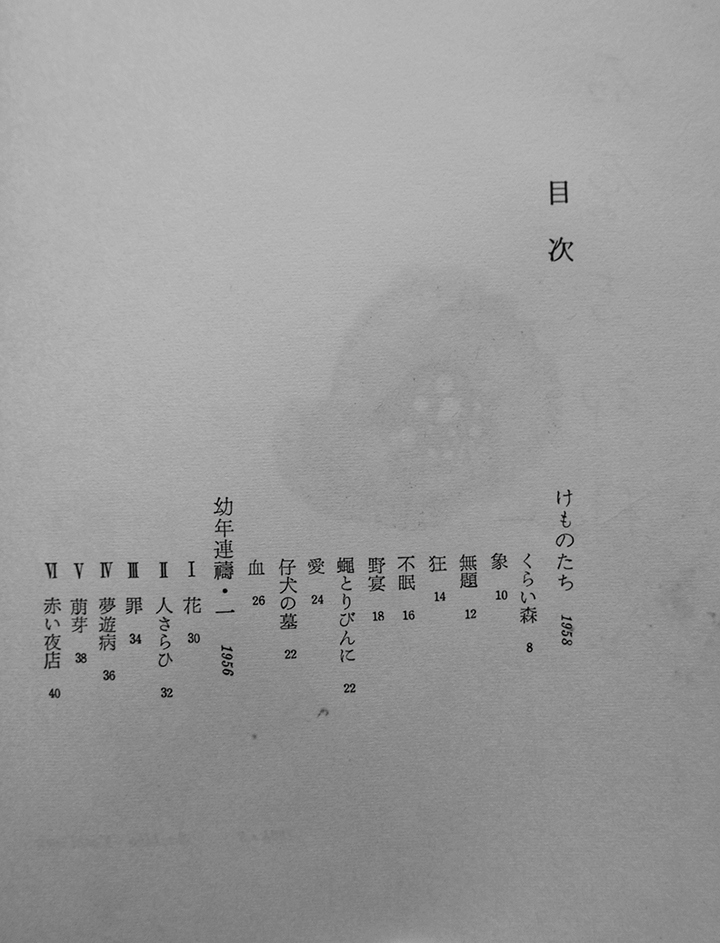 目次
けものたち 1958
くらい森 8
象 10
無題 12
狂 14
不眠 16
野宴 18
蠅とりびんに 22
愛 24
仔犬の墓 22
血 26
幼年連禱・一 1956
Ⅰ 花 30
Ⅱ 人さらひ 32
Ⅲ 罪 34
Ⅳ 夢遊病 36
Ⅴ 萠芽 38
Ⅵ 赤い夜店 40